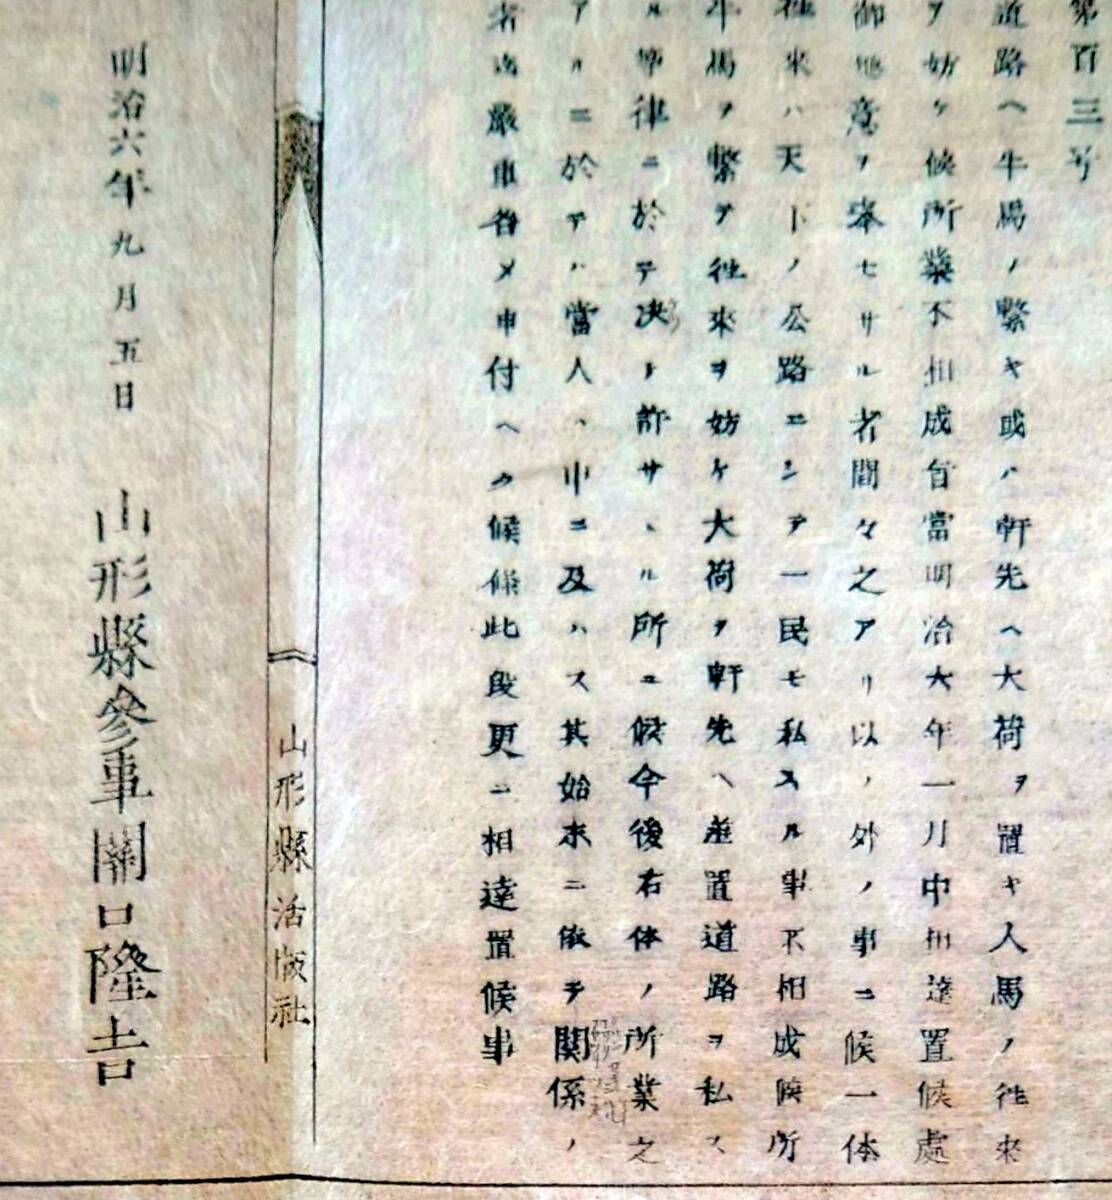 第百三号
道路ヘ牛馬ノ繋キ或ハ軒先ヘ大荷ヲ置キ人馬ノ往来
ヲ妨ケ候所業不相成旨當明治六年一月中相達置候處
御趣意ヲ奉セサル者間々之アリ以ノ外ノ事ニ候一体
往来ハ天下ノ公路ニシテ一民モ私スル事不相成候所
牛馬ヲ繋ヲ往来ヲ妨ケ大荷ヲ軒先ヘ差置道路ヲ私ス
ル等律ニ於テ决ト許サヽル所ニ候今後右体ノ所業之
アルニ於テハ當人ハ申ニ及ハス其始末ニ依テ関係ノ
者迄厳重咎メ申付ヘク候條此段更ニ相達置候事
山形縣活版社
明治六年九月五日 山形縣参事關口隆吉